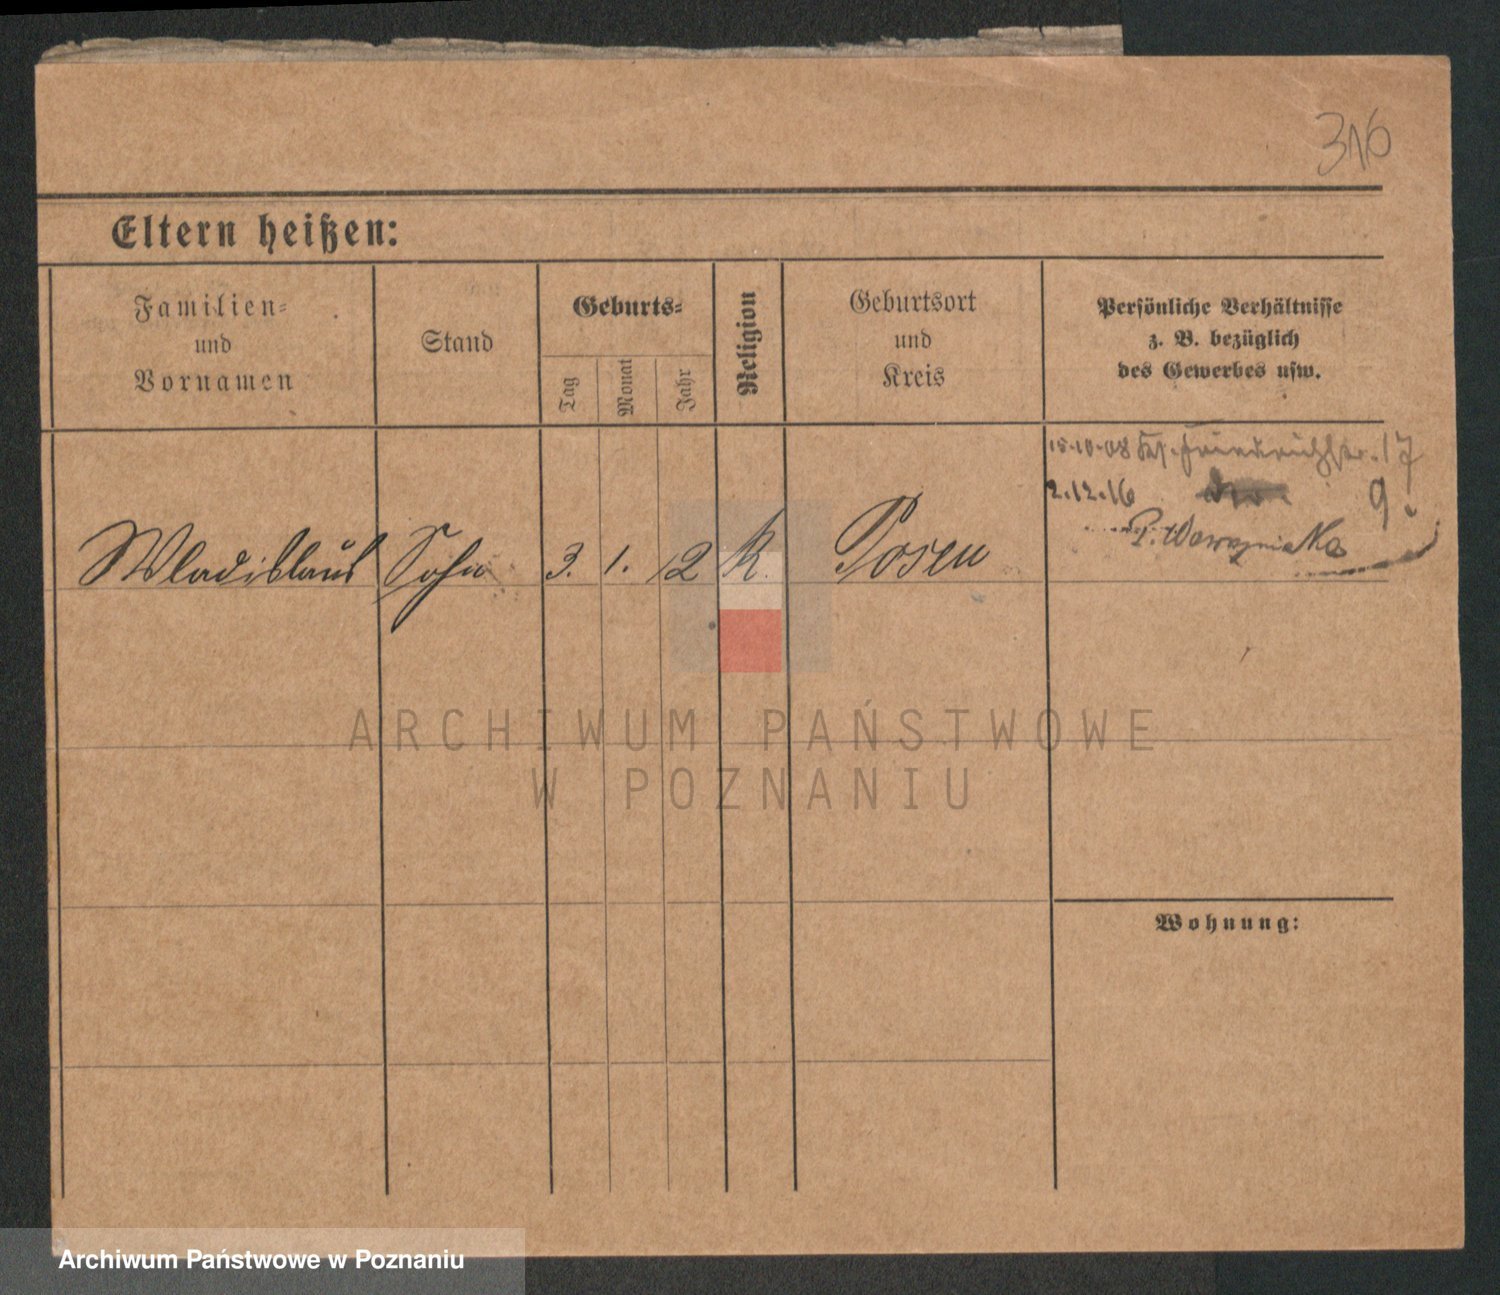 316
Eltern heißen:
Familien-
und
Vornamen
Stand
Geburts-
Tag
Monat
Jahr
Religion
Geburtsort
und
Kreis
Persönliche Verhältnisse
z. B. bezüglich
des Gewerbes usw.
15.10.08 Friedrichstr. 17
2.12.16 9.
Wladislaus Sohn 3. 1. 12 K. Posen
ARCHIWUM PAŃSTWOWE
W POZNANIU
Wohnung:
Archiwum Państwowe w Poznaniu